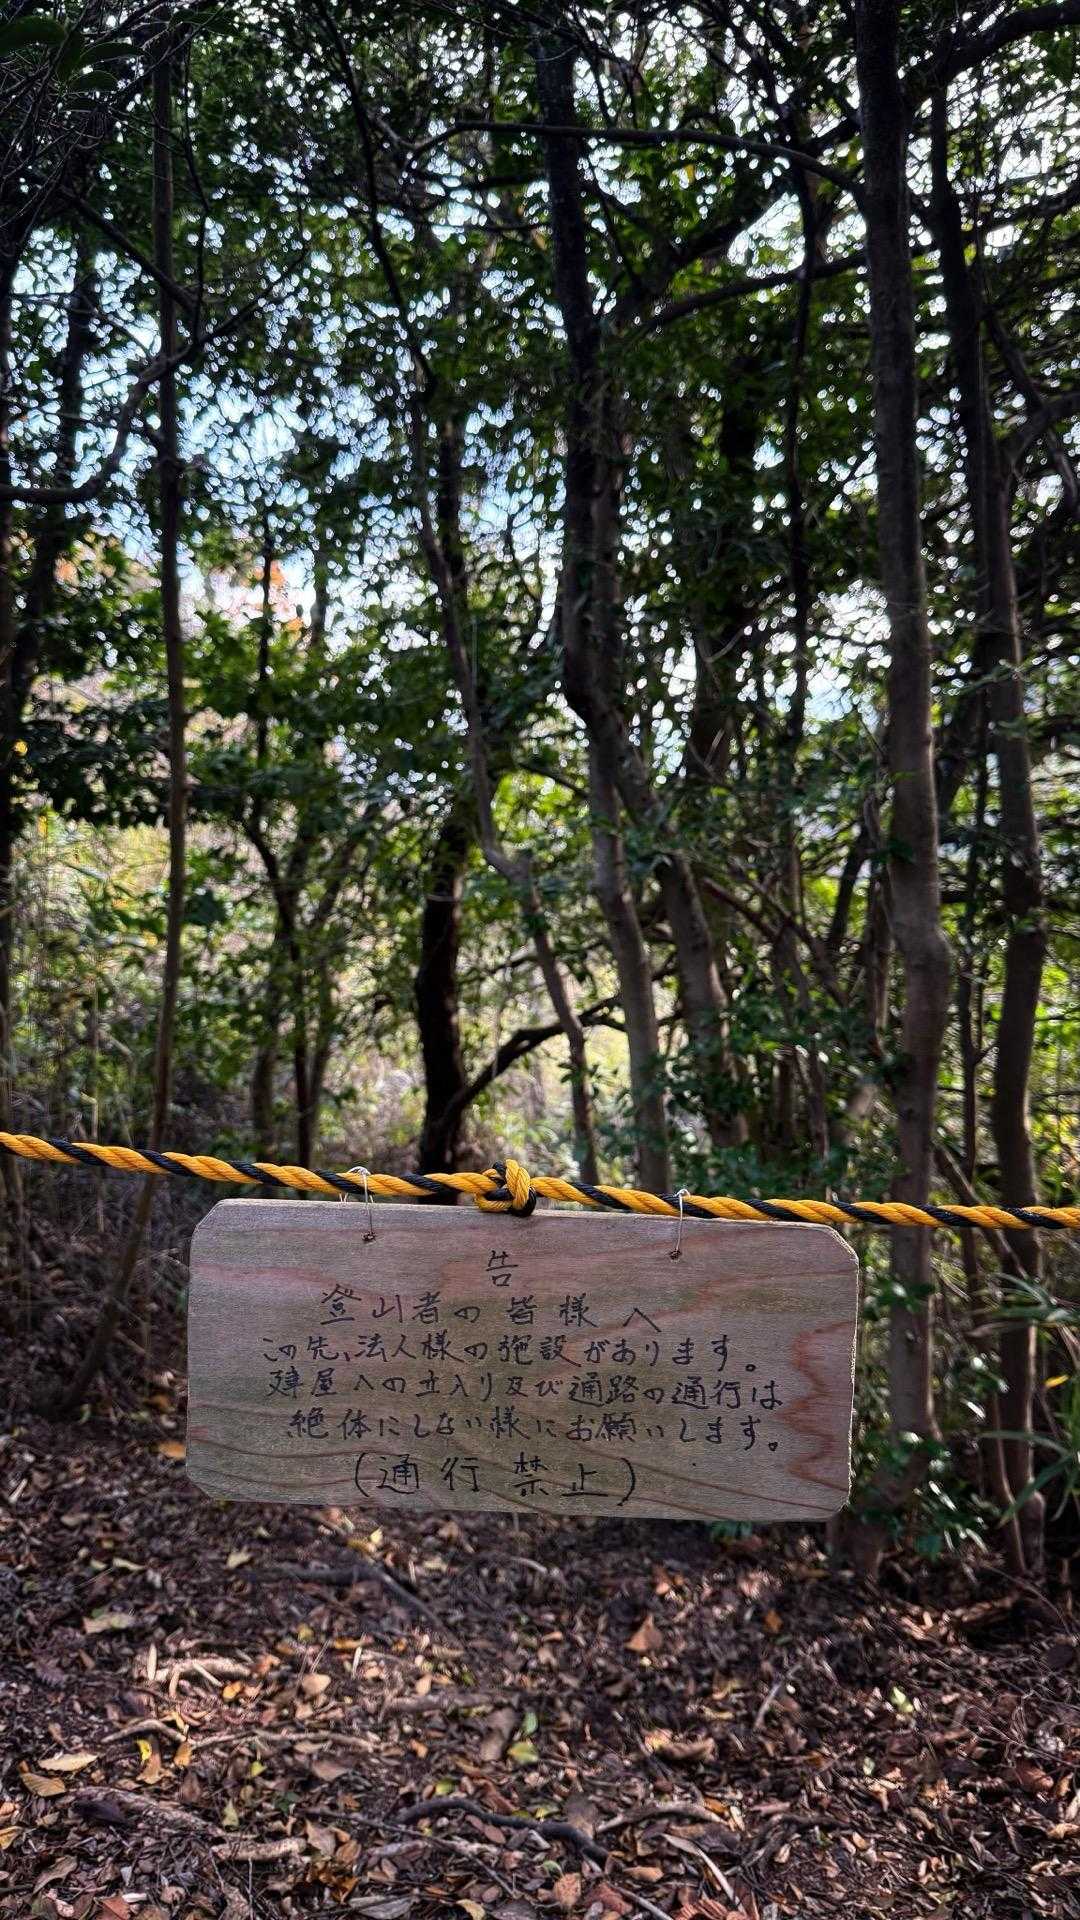 告
登山者の皆様へ
この先、法人様の施設があります。
陣屋への立入り及び通路の通行は
絶体にしない様にお願いします。
(通行禁止)